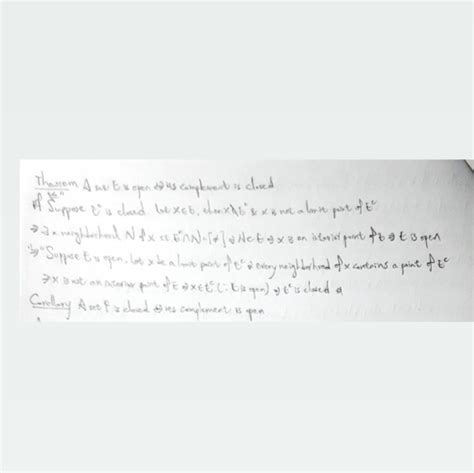 Theorem A set E is open ⇔ its complement is closed
Pf "⇐" Suppose Eᶜ is closed. Let x∈E, then x∉Eᶜ & x is not a limit point of Eᶜ
⇒ ∃ a neighborhood N of x st Eᶜ∩N={ø} ⇒ N⊂E ⇒ x is an interior point of E ⇒ E is open
"⇒" Suppose E is open. Let x be a limit point of Eᶜ ⇒ every neighborhood of x contains a point of Eᶜ
⇒ x is not an interior point of E ⇒ x∈Eᶜ (∵ E is open) ⇒ Eᶜ is closed
Corollary A set F is closed ⇔ its complement is open